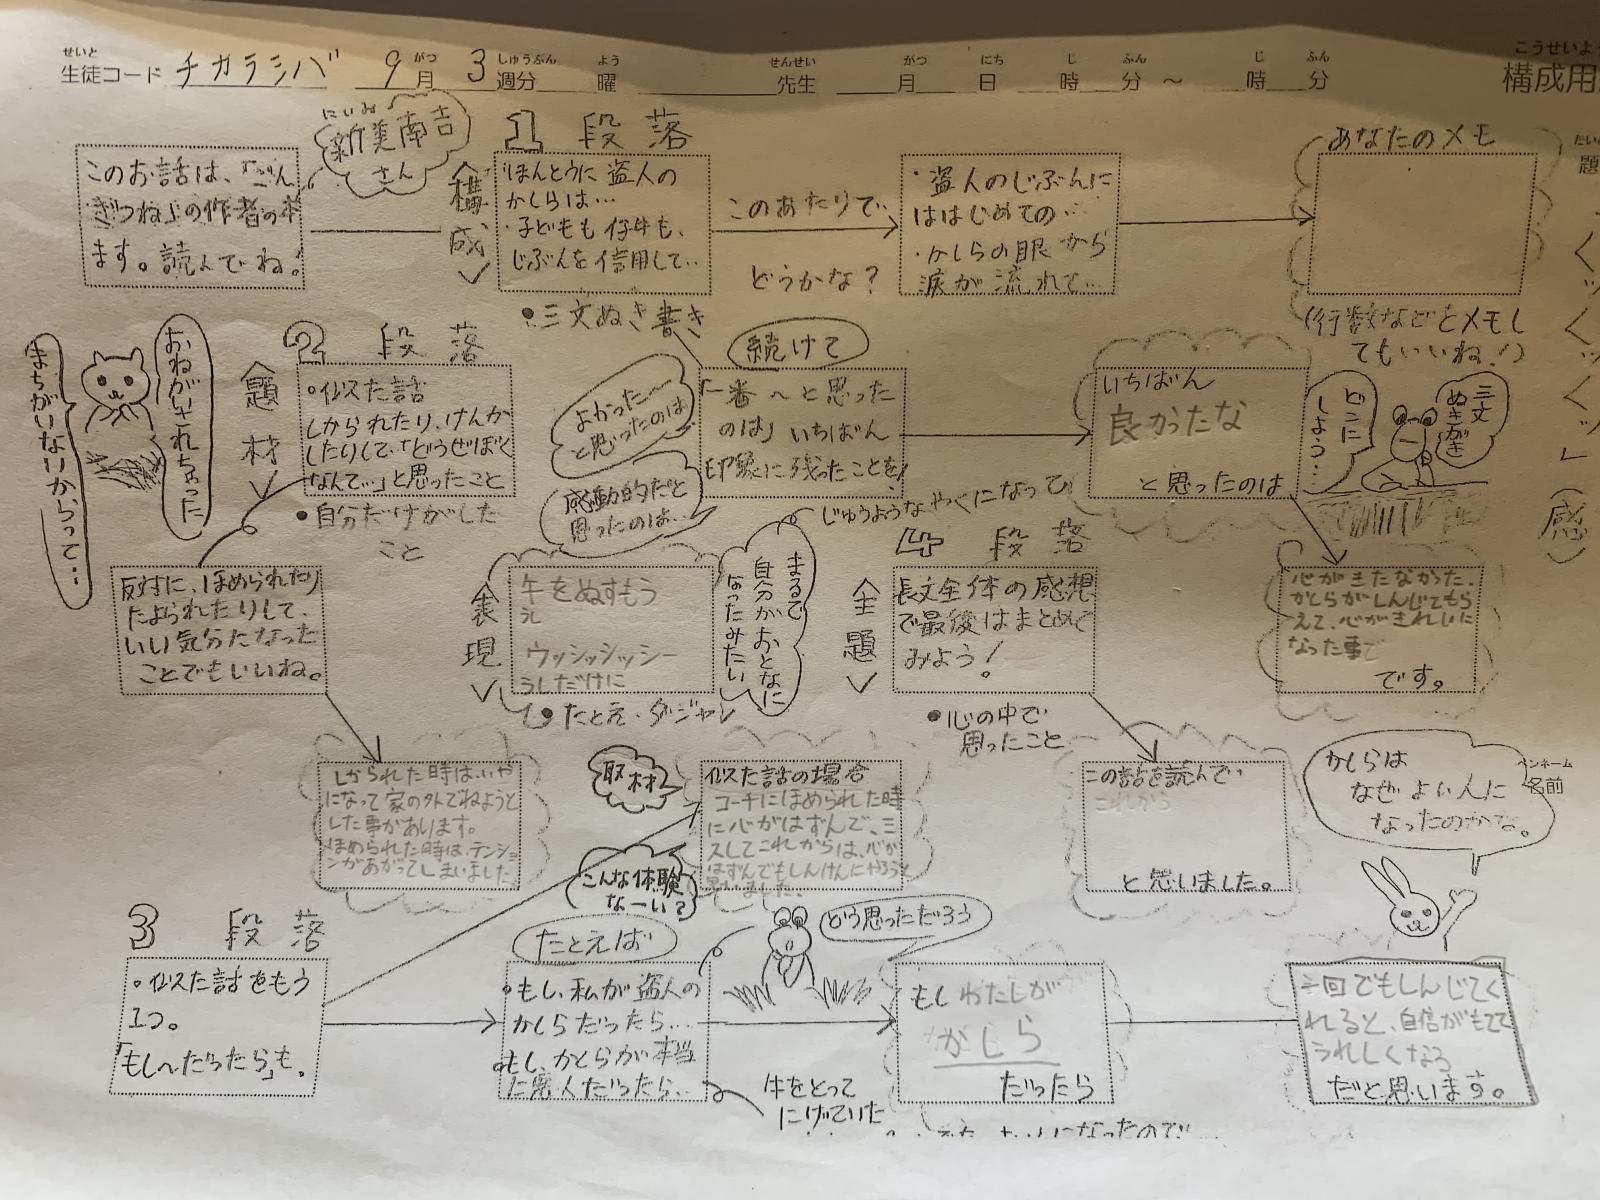 せいと がつ しゅうぶん よう せんせい がつ にち じ ふん じ ふん
生徒コード チカラシバ 9月 3週分 曜 先生 月 日 時 分 ～ 時 分
こうせいよう
構成用
にいみ
新美南吉
さん
このお話は、「ごん
ぎつね」の作者の本
ます。読んでね!
1 段落
〈構成〉
・ほんとうに盗人の
かしらは…
・子どもも仔牛も、
じぶんを信用して…
●三文ぬき書き
このあたりで…
どうかな?
・盗人のじぶんに
ははじめての…
・かしらの眼から
涙が流れて…
あなたのメモ
(行数などとメモし
てもいいね!)
〈感〉
2 段落
〈題材〉
おねがいされちゃった
まちがいないからって…
・似た話
しかられたり、けんか
したりして、「どうせぼく
なんて…」と思ったこと
●自分だけがした
こと
続けて
よかった～
と思ったのは
感動的だと
思ったのは…
「一番～と思った
のは」いちばん
印象に残ったことを
いちばん
良かったな
と思ったのは
どこに
しよう…
三文
ぬきがき
反対に、ほめられたり
たよられたりして、
いい気分になった
ことでもいいね。
〈表現〉
牛をぬすもう
ウッシッシッシー
うしだけに
●たとえ・ダジャレ
まるで
自分がおとなに
なったみたい
じゅうようなやくになって
4 段落
〈主題〉
長文全体の感想
で最後はまとめて
みよう!
●心の中で
思ったこと
心がきたなかった、
かしらがしんじてもら
えて、心がきれいに
なった事で
です。
しかられた時は、いや
になって家の外でねようと
した事があります。
ほめられた時は、テンショ
ンがあがってしまいました
取材
こんな体験
なーいて
似た話の場合
コーチにほめられた時
に心がはずんで、ミ
スしてこれからは、心が
はずんでもしんけんにやろうと
思いました。
この話を読んで、
これから
と思いました。
かしらは
なぜよい人に
なったのかな。
ペンネーム
名前
3 段落
・似た話をもう
1つ。
「もし～だったら」も。
たとえば
・もし、私が盗人の
かしらだったら…
・もし、かしらが本当
に悪人だったら…
どう思っただろう
牛をとって
にげていた
もしわたしが
かしら
だったら
一回でもしんじてく
れると、自信がもてて
うれしくなる
だと思います。